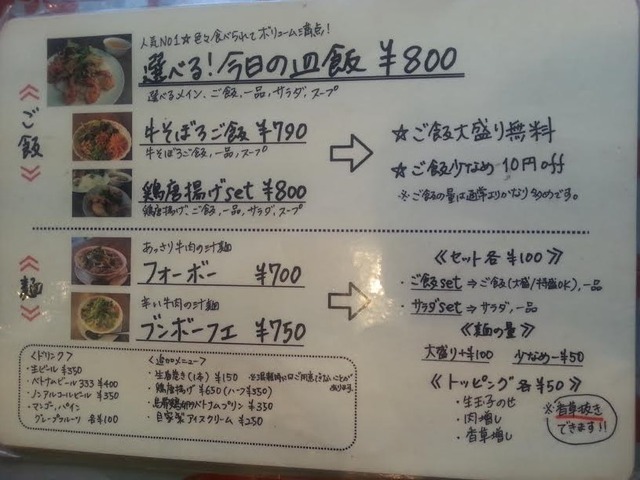 人気NO1☆色々食べられてボリューム満点!
選べる!今日の皿飯 ¥800
選べるメイン、ご飯、一品、サラダ、スープ
ご飯
牛そぼろご飯 ¥790
牛そぼろご飯、一品、スープ
鶏唐揚げset ¥800
鶏唐揚げ、ご飯、一品、サラダ、スープ
☆ご飯大盛り無料
☆ご飯少なめ 10円off
※ご飯の量は通常よりかなり多めです。
麺
あっさり牛肉の汁麺
フォーボー ¥700
辛い牛肉の汁麺
ブンボーフエ ¥750
《セット各¥100》
・ご飯set⇒ご飯(大盛/特盛OK)、一品
・サラダset⇒サラダ、一品
《麺の量》
大盛り+¥100 少なめ-¥50
《トッピング各¥50》
・生玉子のせ
・肉増し
・香草増し
※香草抜きできます!!
<ドリンク>
・生ビール¥350
・ベトナムビール333 ¥400
・ノンアルコールビール ¥350
・マンゴー、パイン
グレープフルーツ 各¥100
<追加メニュー>
・生春巻き(1本) ¥150
鶏唐揚げ ¥650(ハーフ¥350)
ベトナムプリン ¥350
・自家製アイスクリーム ¥250